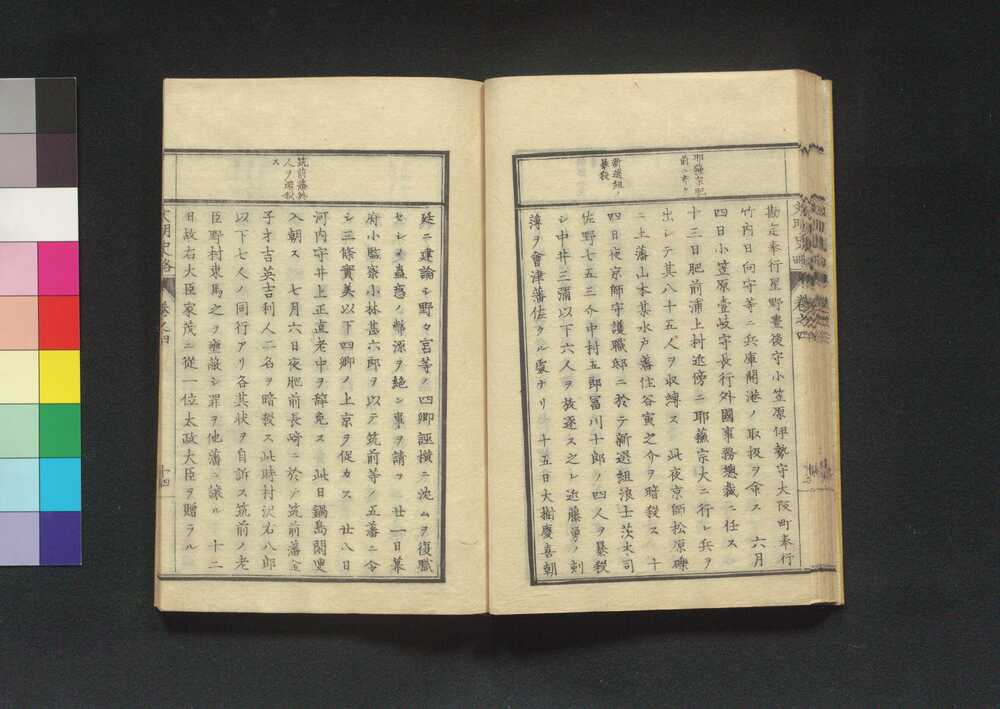 耶蘇宗肥
前ニ行ル
新選組ノ
暴殺
勘定奉行星野豊後守小笠原伊勢守大阪町奉行
竹内日向守等ニ兵庫開港ノ取扱ヲ命ス 六月
四日小笠原壹岐守長行外國事務總裁ニ任ス
十三日肥前浦上村近傍ニ耶蘓宗大ニ行レ兵ヲ
出シテ其八十五人ヲ収縛ス 此夜京師松原磧
ニ上藩山本某水戸藩住谷寅之介ヲ暗殺ス 十
四日夜京師守護職邸ニ於テ新選組浪士茨木司
佐野七五三介中村五郎冨川十郎ノ四人ヲ暴殺
シ中井三彌以下六人ヲ放逐ス之レ近藤勇ノ刻
薄ヲ會津藩佐クル處ナリ 十五日大樹慶喜朝
文明史略 卷之四
筑前藩英
人ヲ暗殺
ス
廷ニ建論シ野々宮等ノ四卿誣横ニ沈ムヲ復職
セシメ蟲惑ノ弊源ヲ絶シ事ヲ請フ 廿一日幕
府小監察小林甚六郎ヲ以テ筑前等ノ五藩ニ令
シ三條實美以下四卿ノ上京ヲ促カス 廿八日
河内守井上正直老中ヲ辞免ス 此日鍋島閑叟
入朝ス 七月六日夜肥前長崎ニ於テ筑前藩金
子才吉英吉利人二名ヲ暗殺ス此時村沢右八郎
以下七人ノ同行アリ各其状ヲ自訴ス筑前ノ老
臣野村東馬之ヲ壅蔽シ罪ヲ他藩ニ譲ル 十二
日故右大臣家茂ニ從一位太政大臣ヲ贈ラル
文明史略 卷之四 十四